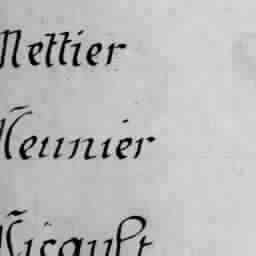 Nettier
Neunier
Nicault